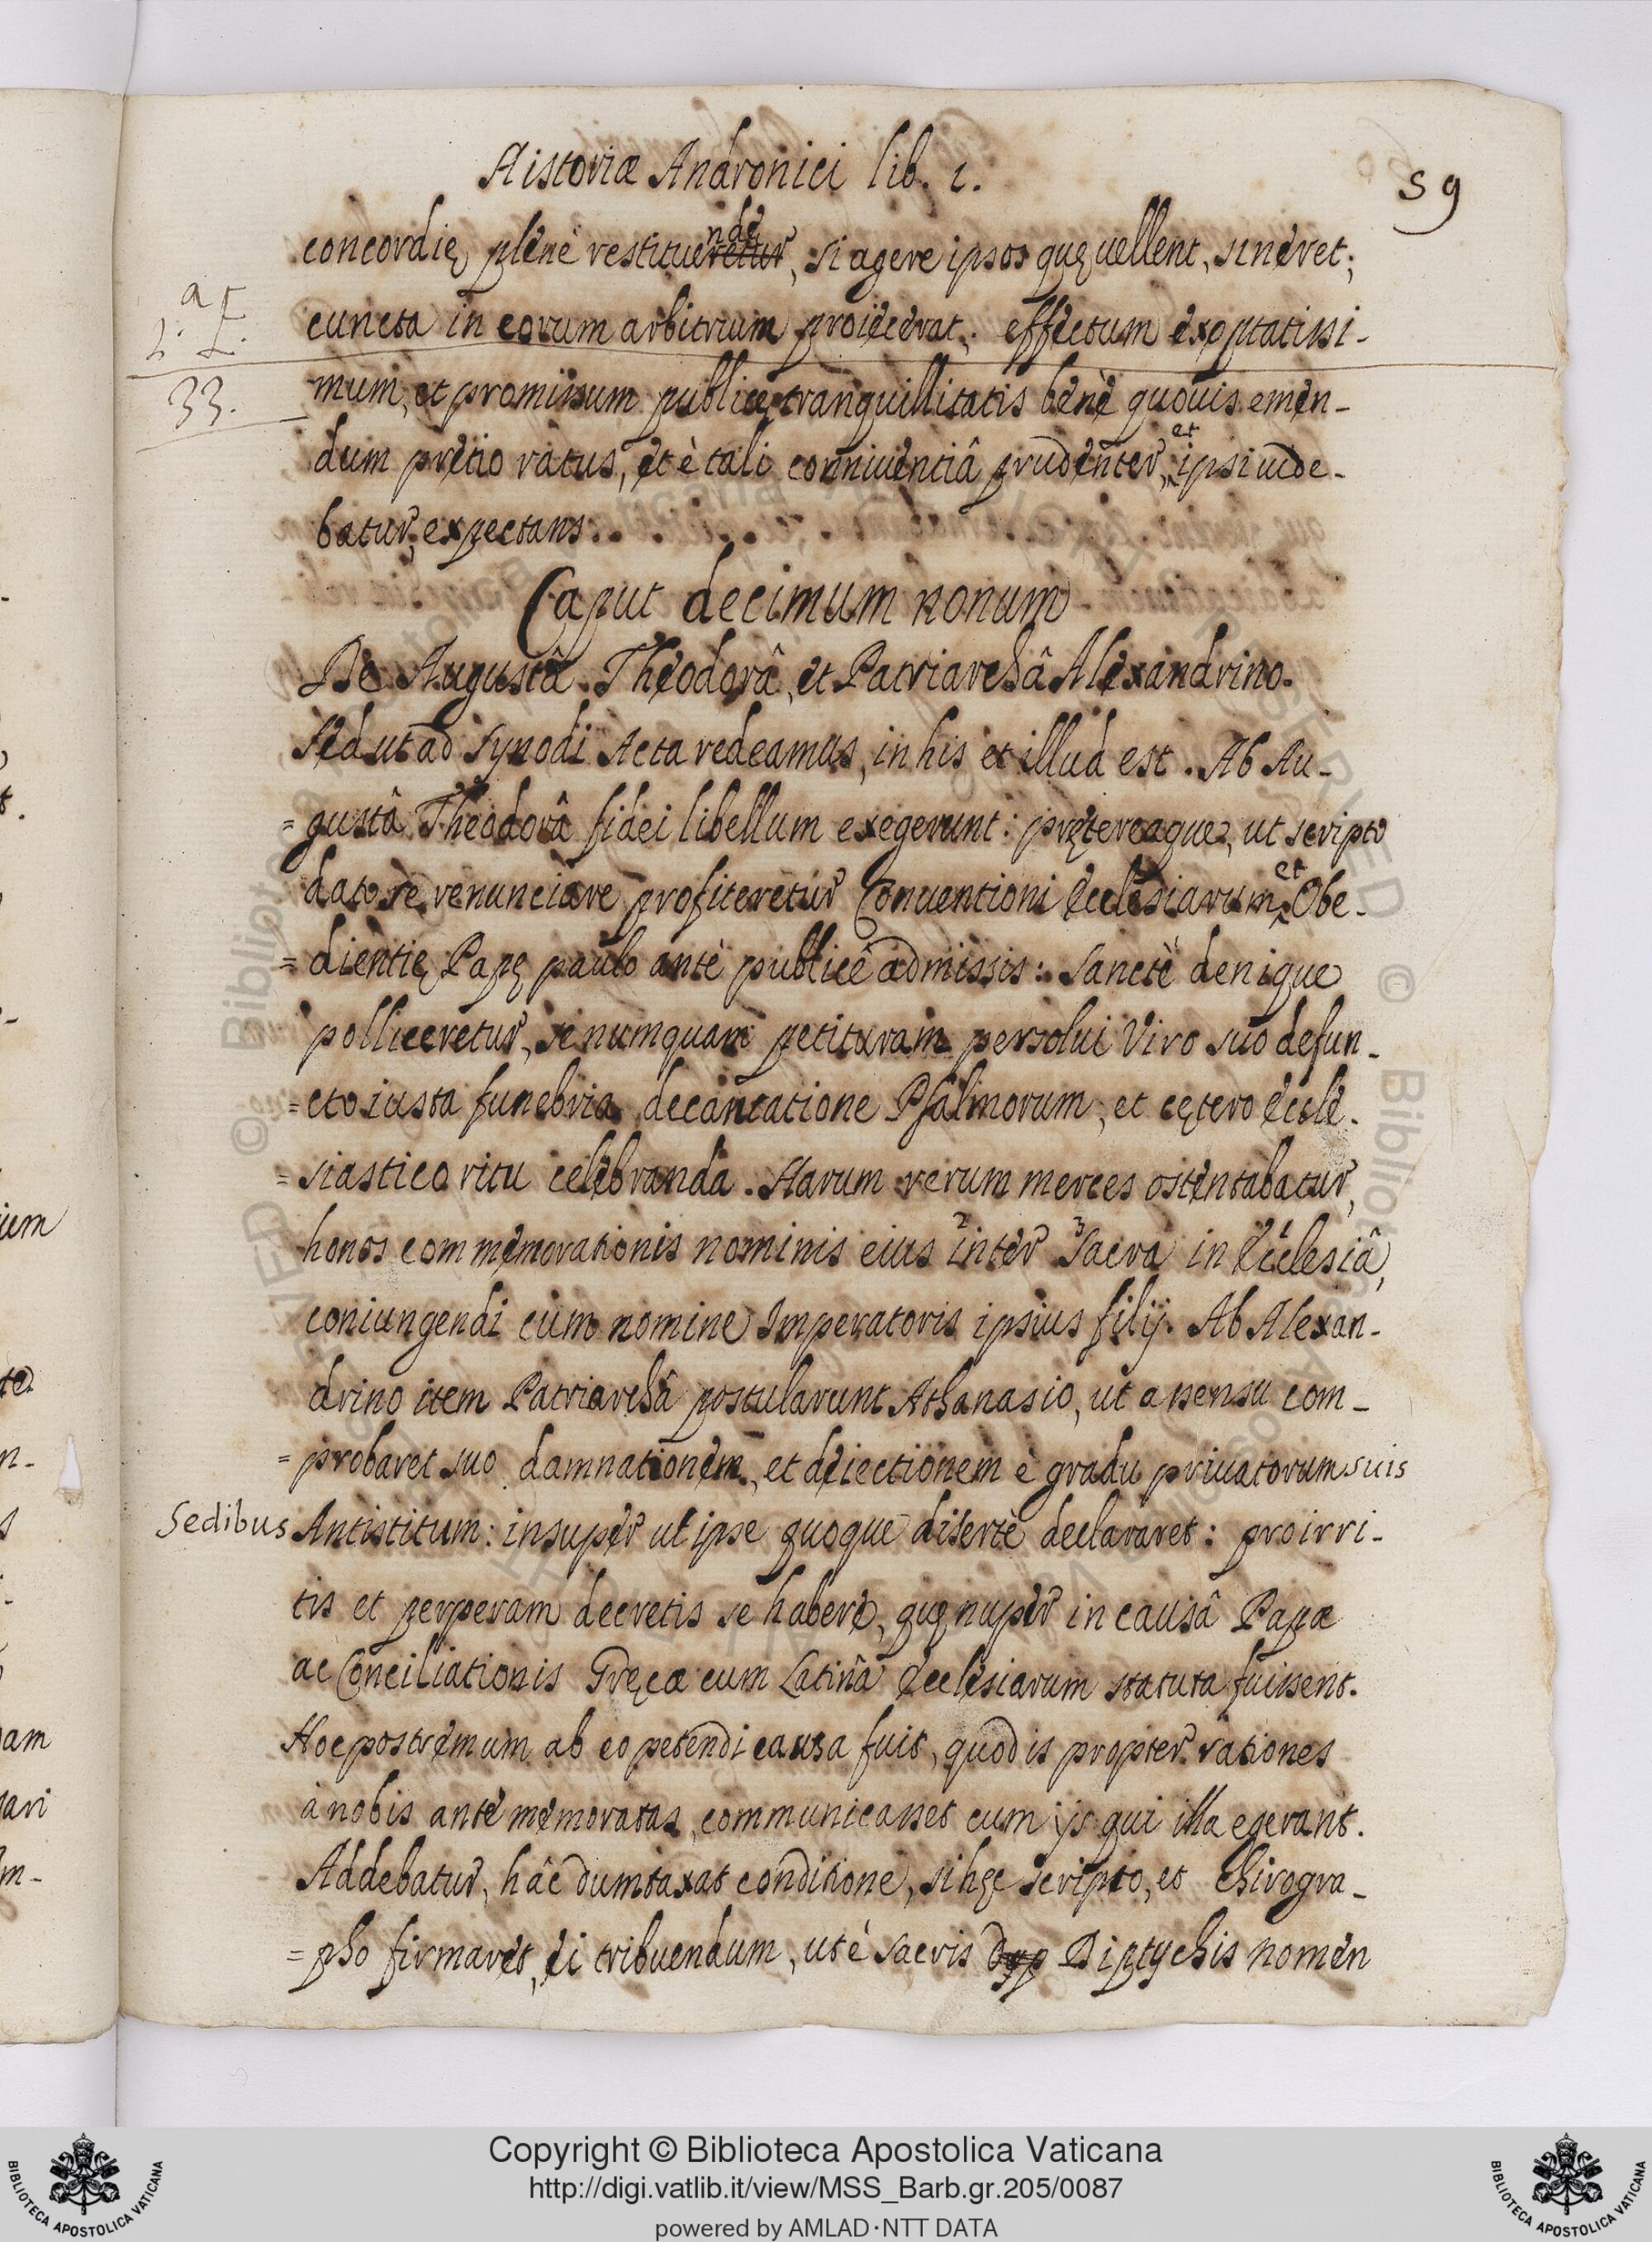 Historiæ Andronici lib. 1.
59
concordię plenè restituendę, si agere ipsos quę uellent, sineret;
a
L. L.
cuncta in eorum arbitrium proiecerat; effectum exoptatissi-
33.
mum, et promissum publicę tranquillitatis benè quouis emen-
dum pretio ratus, et è tali conniuentiâ prudenter, et ipsi uide-
batur, expectans.
Caput decimum nonum
De Augustâ Theodorâ, et Patriarchâ Alexandrino.
Sed ut ad Synodi Acta redeamus, in his et illud est. Ab Au-
=gustâ Theodorâ fidei libellum exegerunt: prętereaque, ut scripto
dato se renunciare profiteretur Conuentioni Ecclesiarum, et Obe-
=dientię Papę paulo antè publicè admissis: Sanctè denique
polliceretur, se numquam petituram persolui Viro suo defun-
=cto iusta funebria decantatione Psalmorum, et cętero Eccle-
=siastico ritu celebranda. Harum rerum merces ostentabatur,
honos commemorationis nominis eius 2 inter 3 Sacra in 1 Ecclesiâ,
coniungendi cum nomine Imperatoris ipsius filij. Ab Alexan-
drino item Patriarchâ postularunt Athanasio, ut assensu com-
=probaret suo damnationem, et deiectionem è gradu priuatorum suis
Sedibus Antistitum: insuper ut ipse quoque disertè declararet: pro irri-
tis et perperam decretis se habere, quę nuper in causâ Papæ
ac Conciliationis Gręcæ cum Latinâ Ecclesiarum statuta fuissent.
Hoc postremum ab eo petendi causa fuit, quod is propter rationes
à nobis ante memoratas, communicasset cum ijs qui illa egerant.
Addebatur, hâc dumtaxat conditione, si hęc scripto, et Chirogra-
=pho firmaret, ei tribuendum, ut è sacris Diptychis nomen
Copyright © Biblioteca Apostolica Vaticana
http://digi.vatlib.it/view/MSS_Barb.gr.205/0087
powered by AMLAD·NTT DATA
BIBLIOTECA APOSTOLICA VATICANA
BIBLIOTECA APOSTOLICA VATICANA